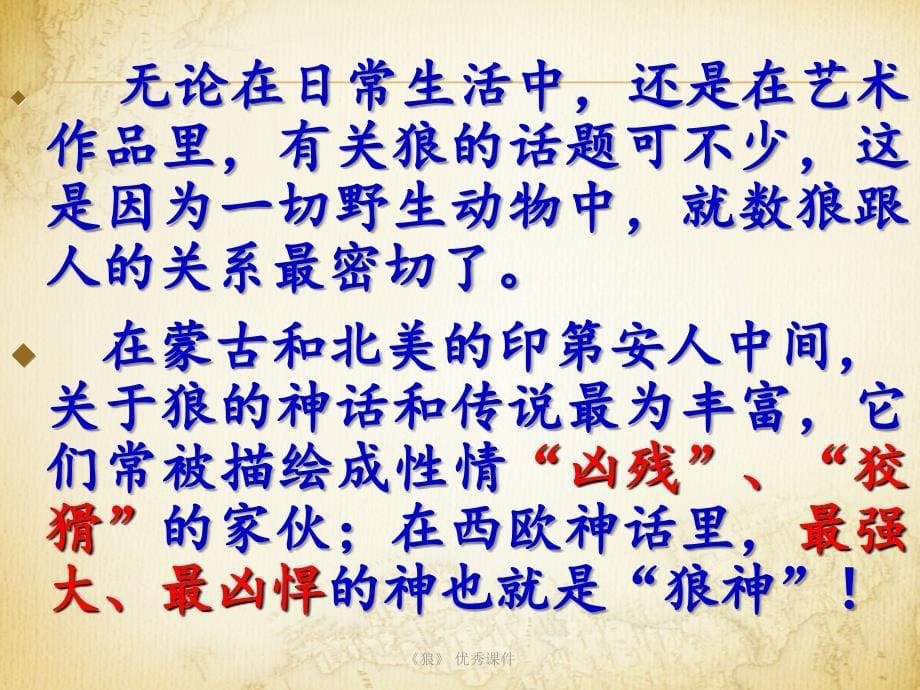 无论在日常生活中，还是在艺术
作品里，有关狼的话题可不少，这
是因为一切野生动物中，就数狼跟
人的关系最密切了。
在蒙古和北美的印第安人中间，
关于狼的神话和传说最为丰富，它
们常被描绘成性情“凶残”、“狡
猾”的家伙；在西欧神话里，最强
大、最凶悍的神也就是“狼神”！
《狼》 优秀课件